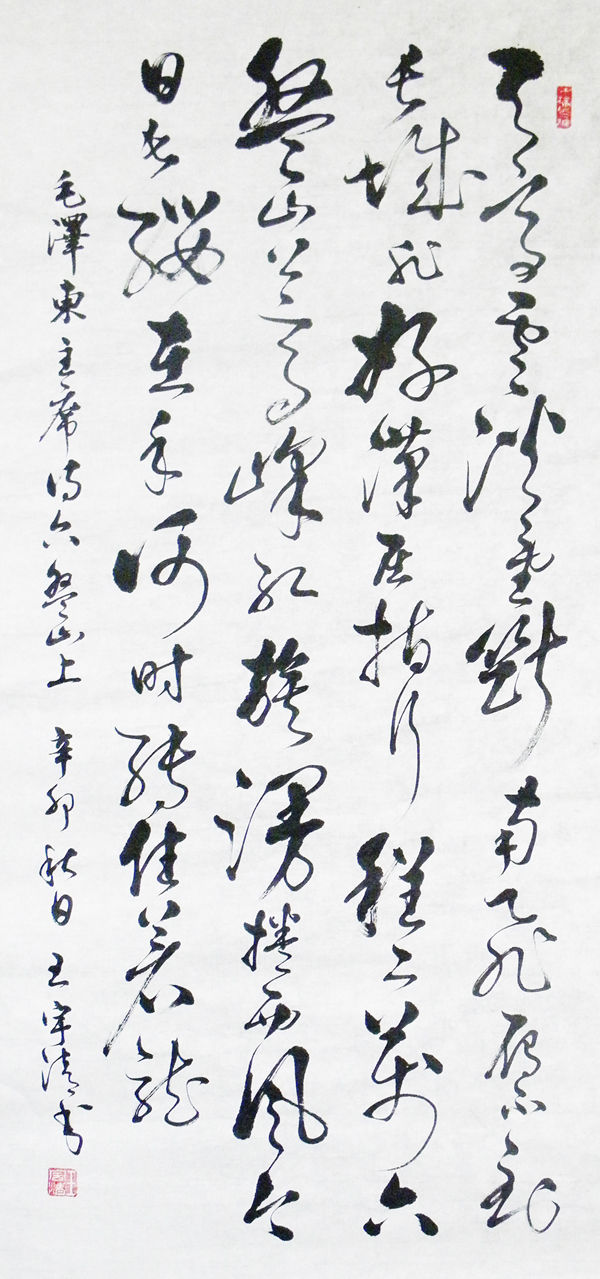 天高雲淡望斷南飛雁不到
長城非好漢屈指行程二萬六
盤山上高峰紅旗漫捲西風今
日長纓在手何时縛住蒼龍
毛澤東主席詩六盤山上 辛卯秋日 王清書